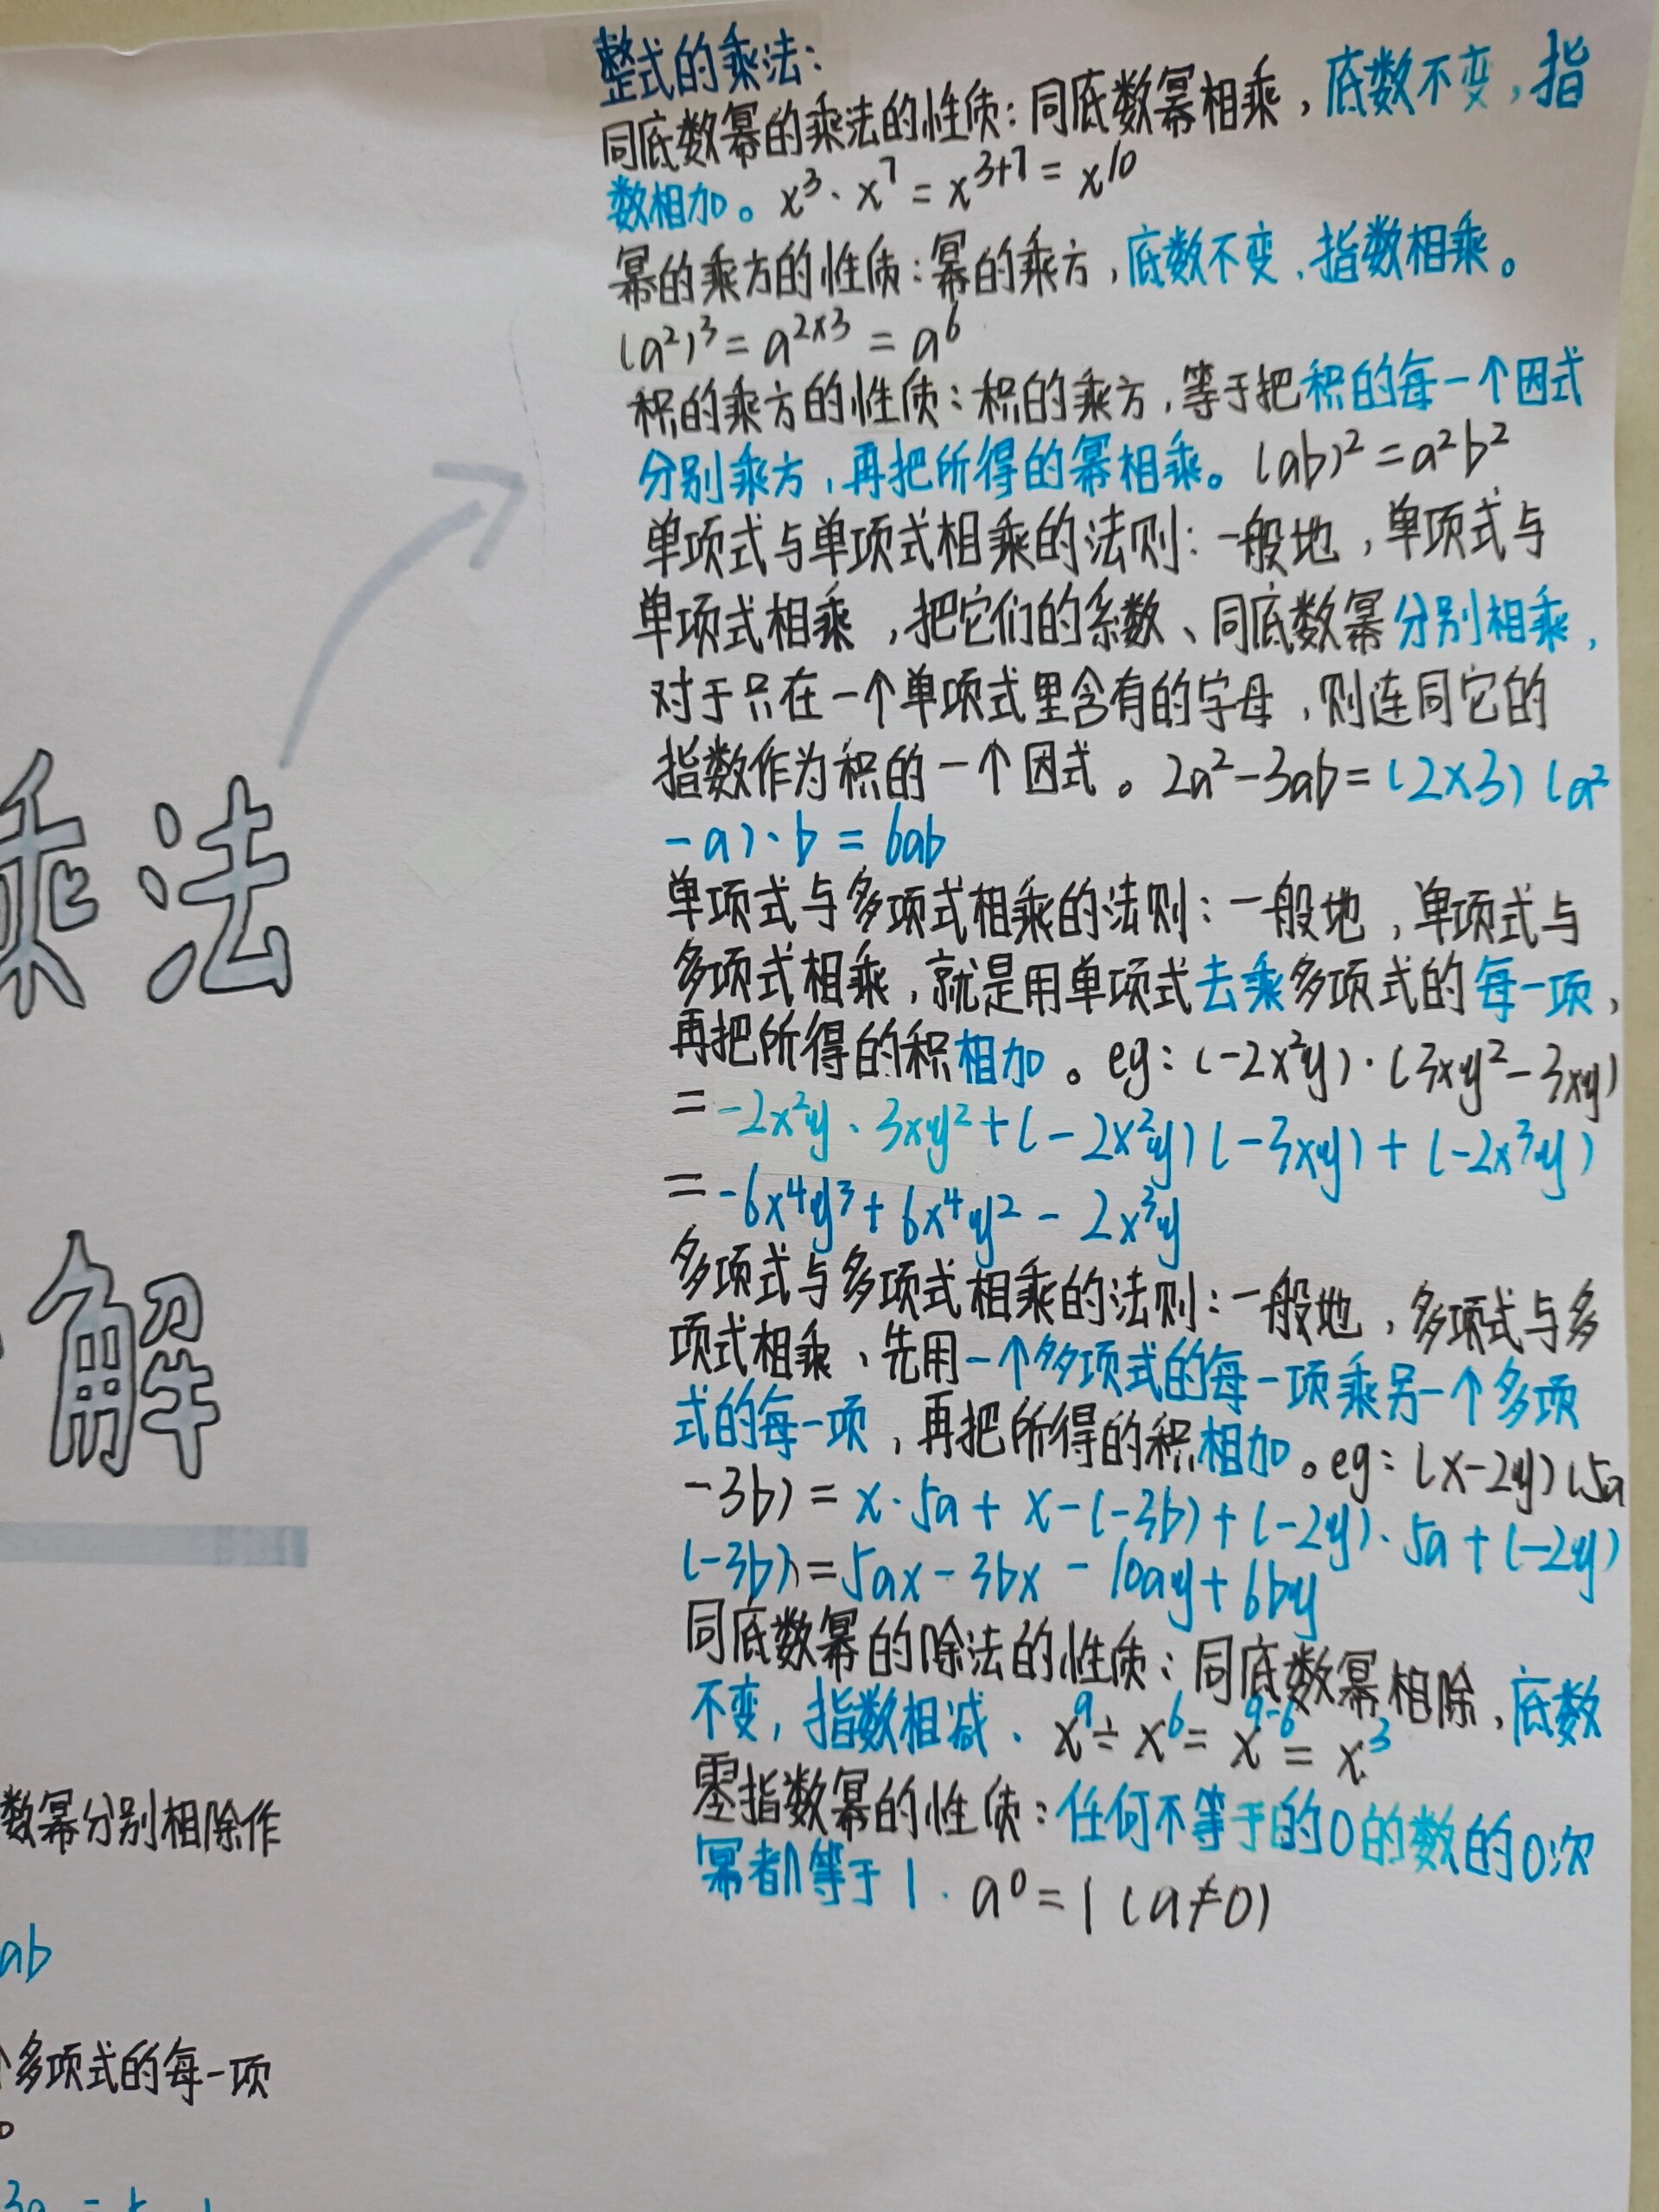 整式的乘法：
同底数幂的乘法的性质：同底数幂相乘，底数不变，指
数相加。x³·x⁷=x³⁺⁷=x¹⁰
幂的乘方的性质：幂的乘方，底数不变、指数相乘。
(a²)³=a²ˣ³=a⁶
积的乘方的性质：积的乘方，等于把积的每一个因式
分别乘方，再把所得的幂相乘。(ab)²=a²b²
单项式与单项式相乘的法则：一般地，单项式与
单项式相乘，把它们的系数、同底数幂分别相乘，
对于只在一个单项式里含有的字母，则连同它的
指数作为积的一个因式。2a²-3ab=(2×3)(a²
-a)·b=6ab
乘法
单项式与多项式相乘的法则：一般地，单项式与
多项式相乘，就是用单项式去乘多项式的每一项，
再把所得的积相加。eg：(-2x²y)·(3xy²-3xy)
=-2x²y·3xy²+(-2x²y)(-3xy)+(-2x³y)
=-6x⁴y³+6x⁴y²-2x³y
多项式与多项式相乘的法则：一般地，多项式与多
项式相乘、先用一个多项式的每一项乘另一个多项
式的每一项，再把所得的积相加。eg：(x-2y)(5a
-3b)=x·5a+x-(-3b)+(-2y)·5a+(-2y)
(-3b)=5ax-3bx-10ay+6by
解
同底数幂的除法的性质：同底数幂相除，底数
不变，指数相减．x⁹÷x⁶=x⁹⁻⁶=x³
零指数幂的性质：任何不等于的0的数的0次
幂都等于1．a⁰=1(a≠0)
数幂分别相除作
ab
多项式的每一项